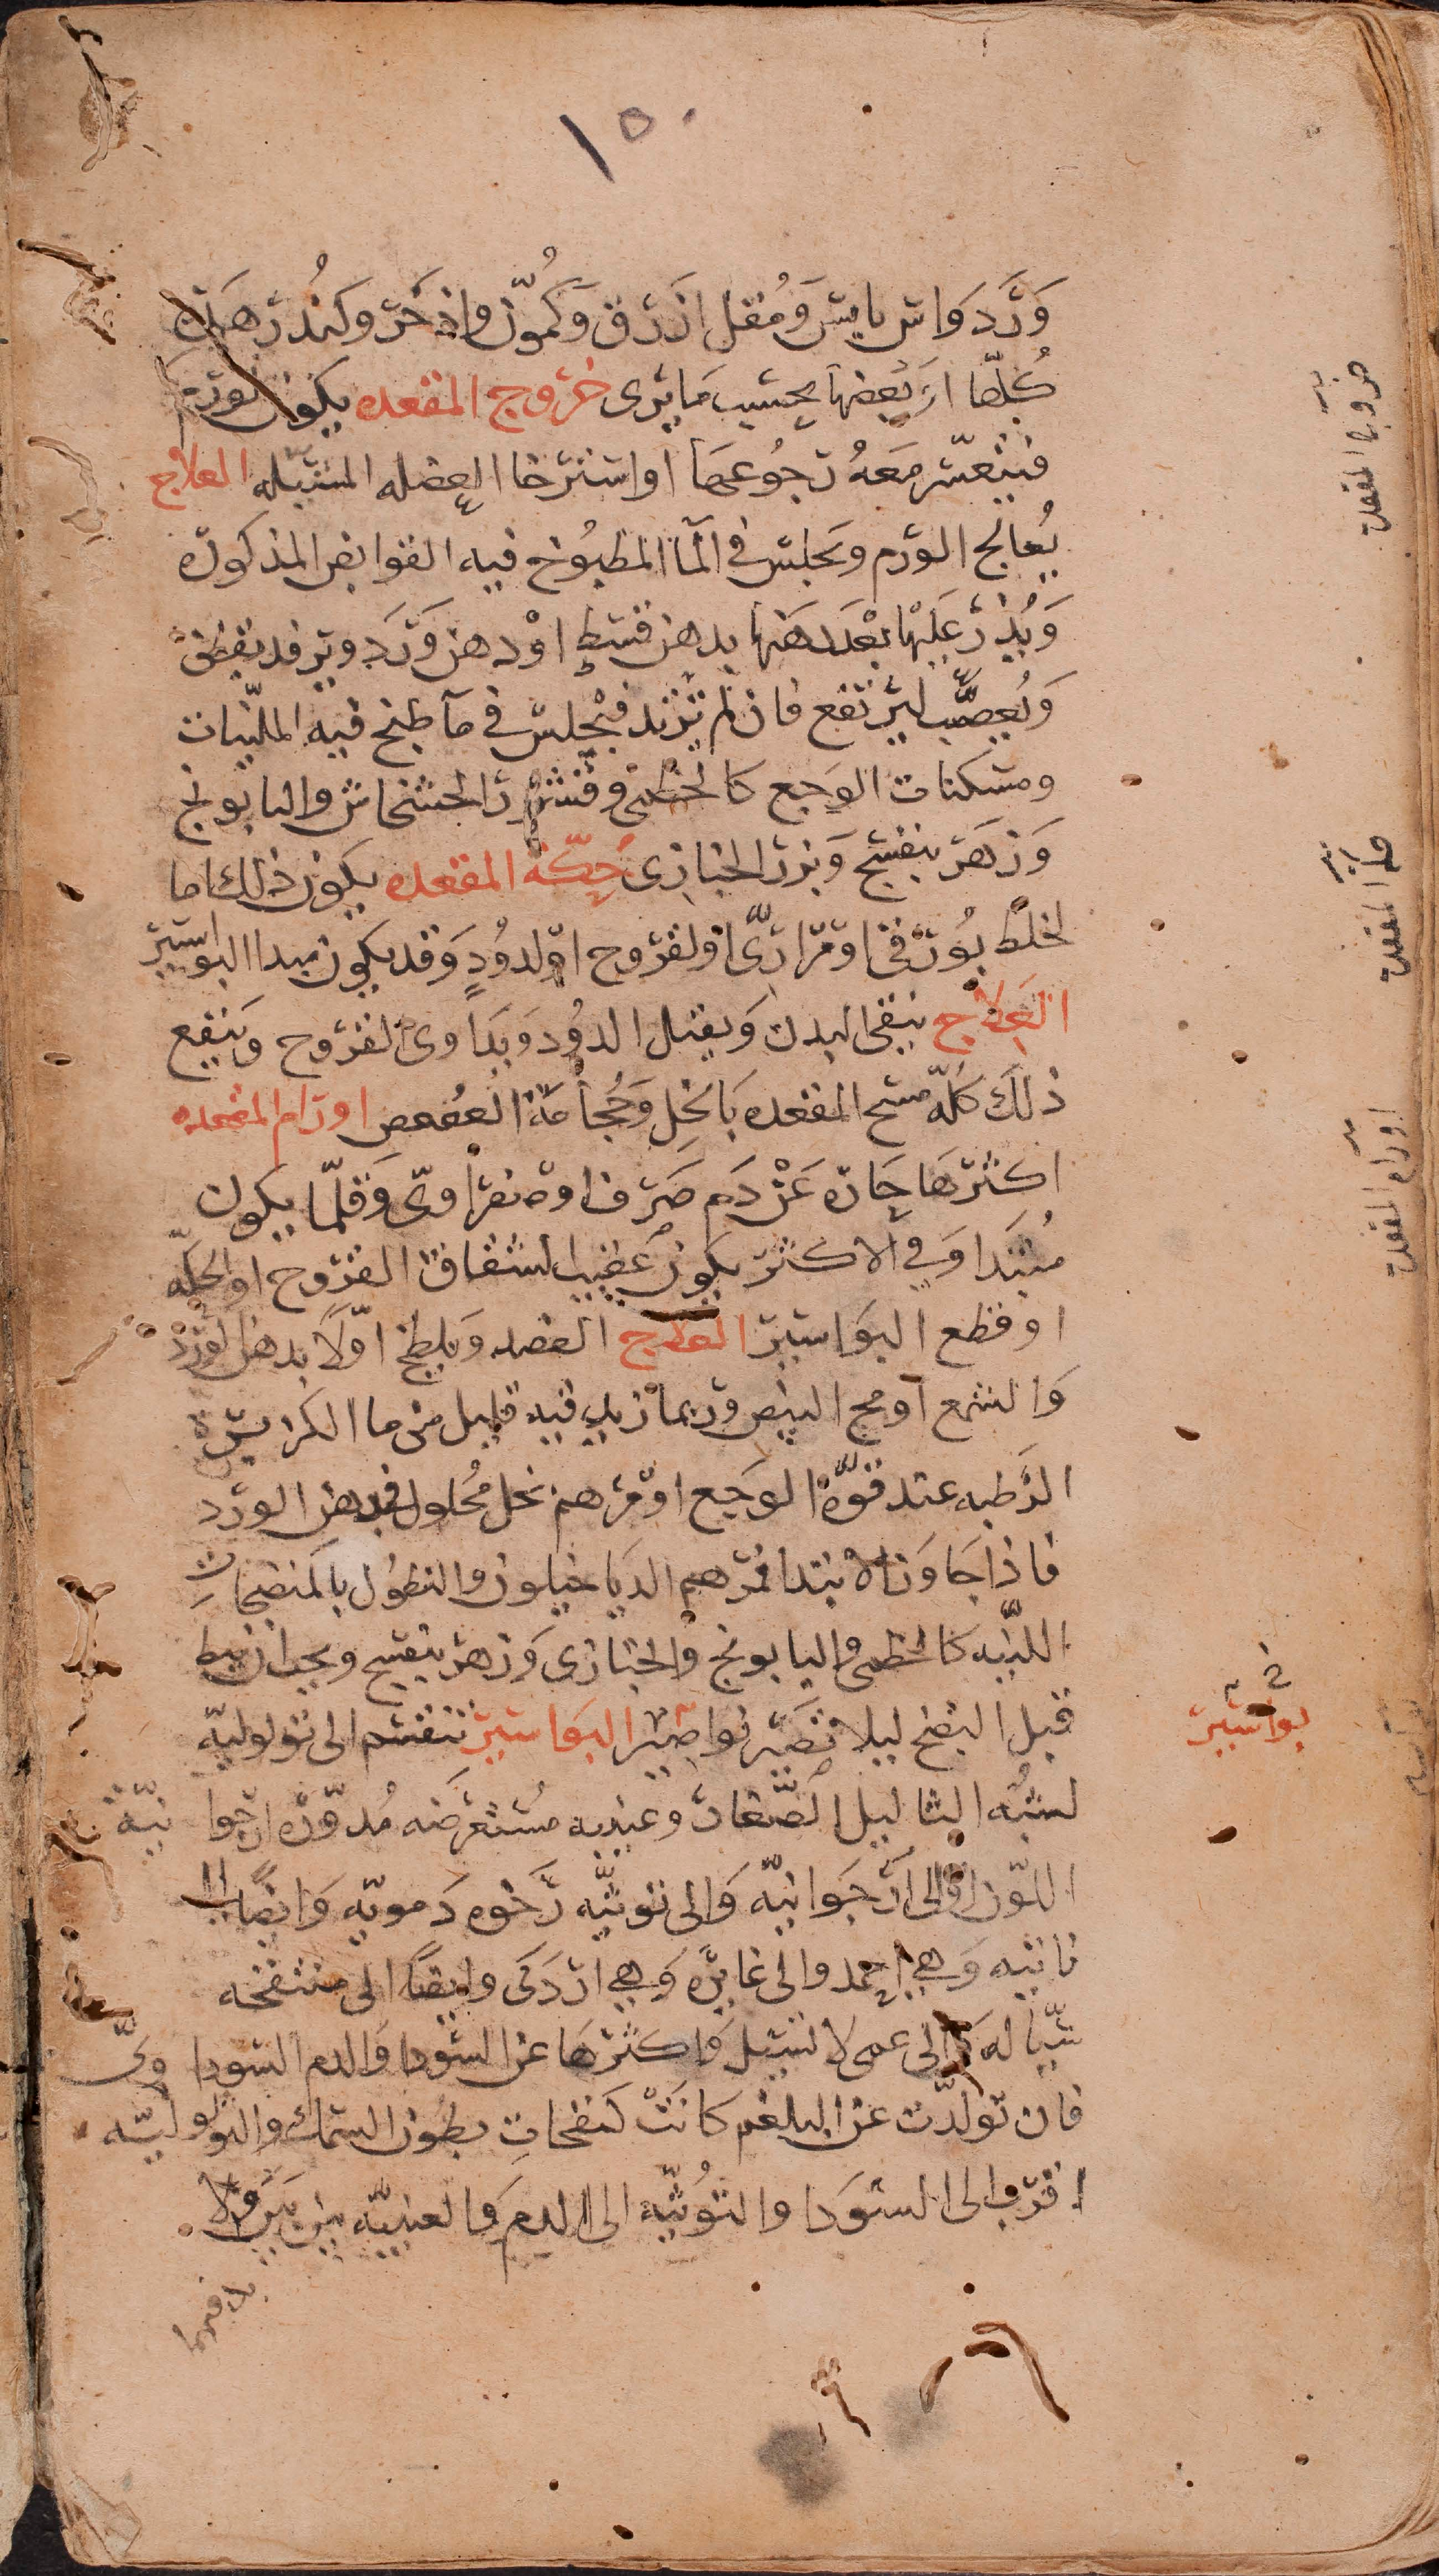 ١٥٠
وَرْد واس يابس وَمُقل ازرق وَكمّون واذخر وكندر هذه
كُلّها او بَعضها بحسب مَا يرى خروج المقعده يكون لورم
فيتعسّر مَعَهُ رجُوعهَا او استرخا العضله المشيّله العلاج
يُعالج الورم وَيجلس في المآ المطبُوخ فيه القوابض المذكوره
وَيُذرّ عَليْها بَعْدَ دَهنها بدهن قسطٍ اوْ دهن وَرد ويرفد بقطن
وَيُعصّب ليرتفع فان لم يرتد فيجلس في مآ طبخ فيه المليّنات
ومسكنات الوجع كالخطمى وقشور الخشخاش والبابونج
وَزهر بنفسج وَبزر الخبازى حِكّة المقعده يكون ذلك اما
لخلط بُورقى او مرارىّ او لقروح اوْ لدوُدٍ وَقد يكون مبدا البواسير
العَلاج ينقى البدن وَيقتل الدوُد وَيدَاوى القروح وَينفع
ذلك كلّه مسح المقعده بَالخلِ وَحُجامَة العُصعص اورام المقعده
اكثرها حَاره عَنْ دَم صَرف او صفراوىّ وَقلّما يكون
مُبتدَا وَفي الاكثر يكون عَقيب لشقاق القروح او الحكّه
او قطع البوَاسير العلاج الفصد وَيلطخ اوّلاً بدهن الورد
وَالشمع او مح البيض وربما زيد فيه قليل من ما الكزبرة
الرَّطبه عند قوَّة الوجَع او مَرهم نخل مُحلول في دهن الورد
فاذا جَاوَز الابتدا فمَرهم الديَاخيلون والنطوُل بالمنضجاتِ
الليّنه كالخطمى والبابونج والخبازى وَزهر بنفسج ويجب ان يبط
قبل النضج ليلا تصَير نواصير البوَاسير تنقسم الى ثولوليّه
لشبْه الثاليل الصّغار وعنبيه مُستعرضَه مُدوّره ارجوانيّة
اللّون او الى ارْجَوانيّه وَالى توثيَّه رَخوه دَمويّه وَايضًا الى
ناتيه وَهي احمد والى غايرَه وَهي اردَى وايضًا الى منتفخه
سَيّاله وَالى عمى لا تسيل وَاكثرهَا عن السّودا وَالدم السوداوىّ
فان تولّدت عن البلغم كانَتْ كَنفخاتِ بطون السمك والثولوليّه
اقرب الى السّوَدا والتُوثيّه الى الدم وَالعنبيّه بين بَين ولا
خروج المقعدة
حكة المقعدة
اورام المقعدة
بواسير